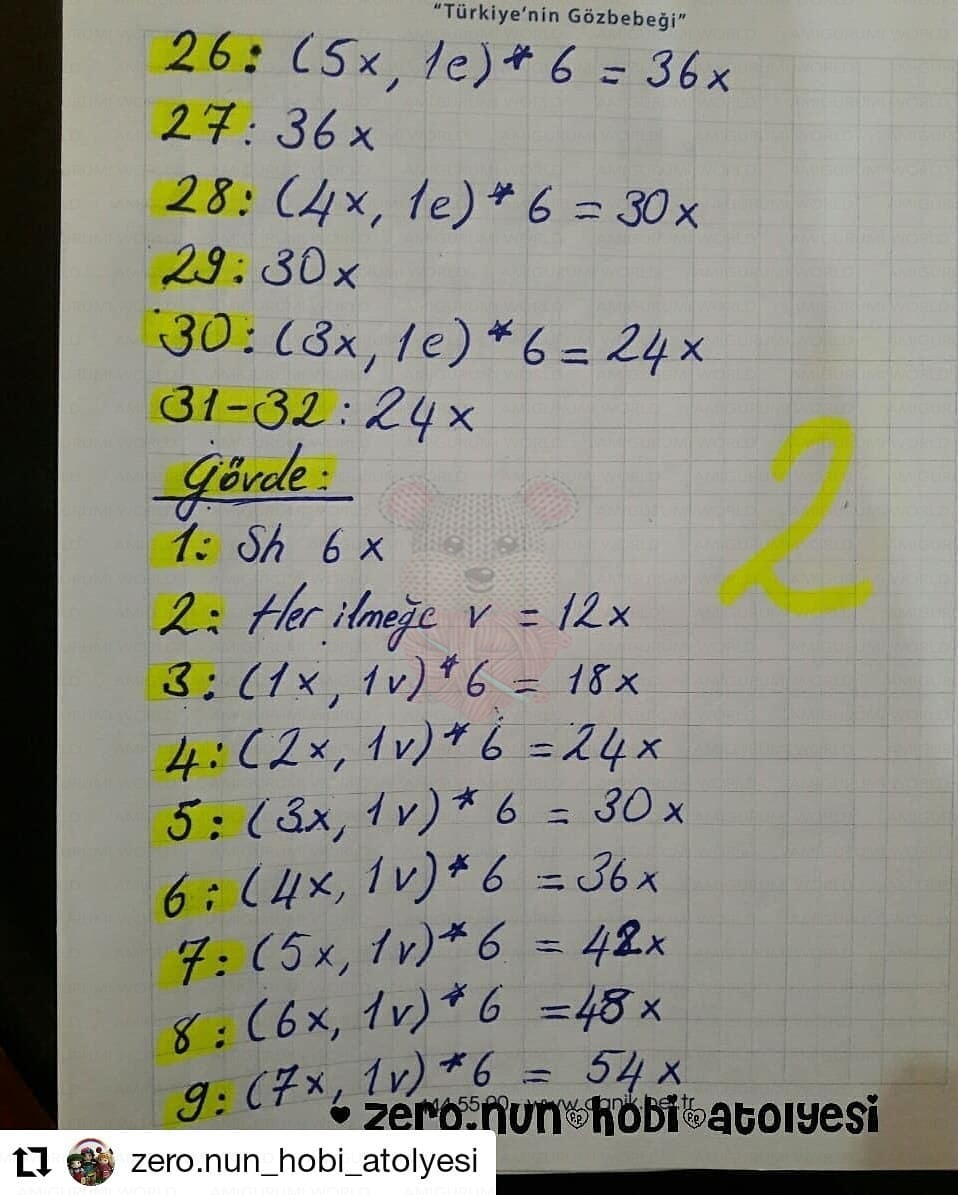 "Türkiye'nin Gözbebeği"
26: (5x, 1e) * 6 = 36x
27: 36x
28: (4x, 1e) * 6 = 30x
29: 30x
30: (3x, 1e) * 6 = 24x
31-32: 24x
Gövde:
1: Sh 6x
2: Her ilmeğe v = 12x
3: (1x, 1v) * 6 = 18x
4: (2x, 1v) * 6 = 24x
2
5: (3x, 1v) * 6 = 30x
6: (4x, 1v) * 6 = 36x
7: (5x, 1v) * 6 = 42x
8: (6x, 1v) * 6 = 48x
9: (7x, 1v) * 6 = 54x
zero.nun hobi atolyesi
zero.nun_hobi_atolyesi